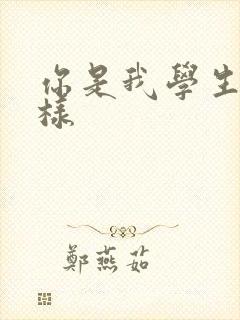 你是我學生
樣
鄭燕茹